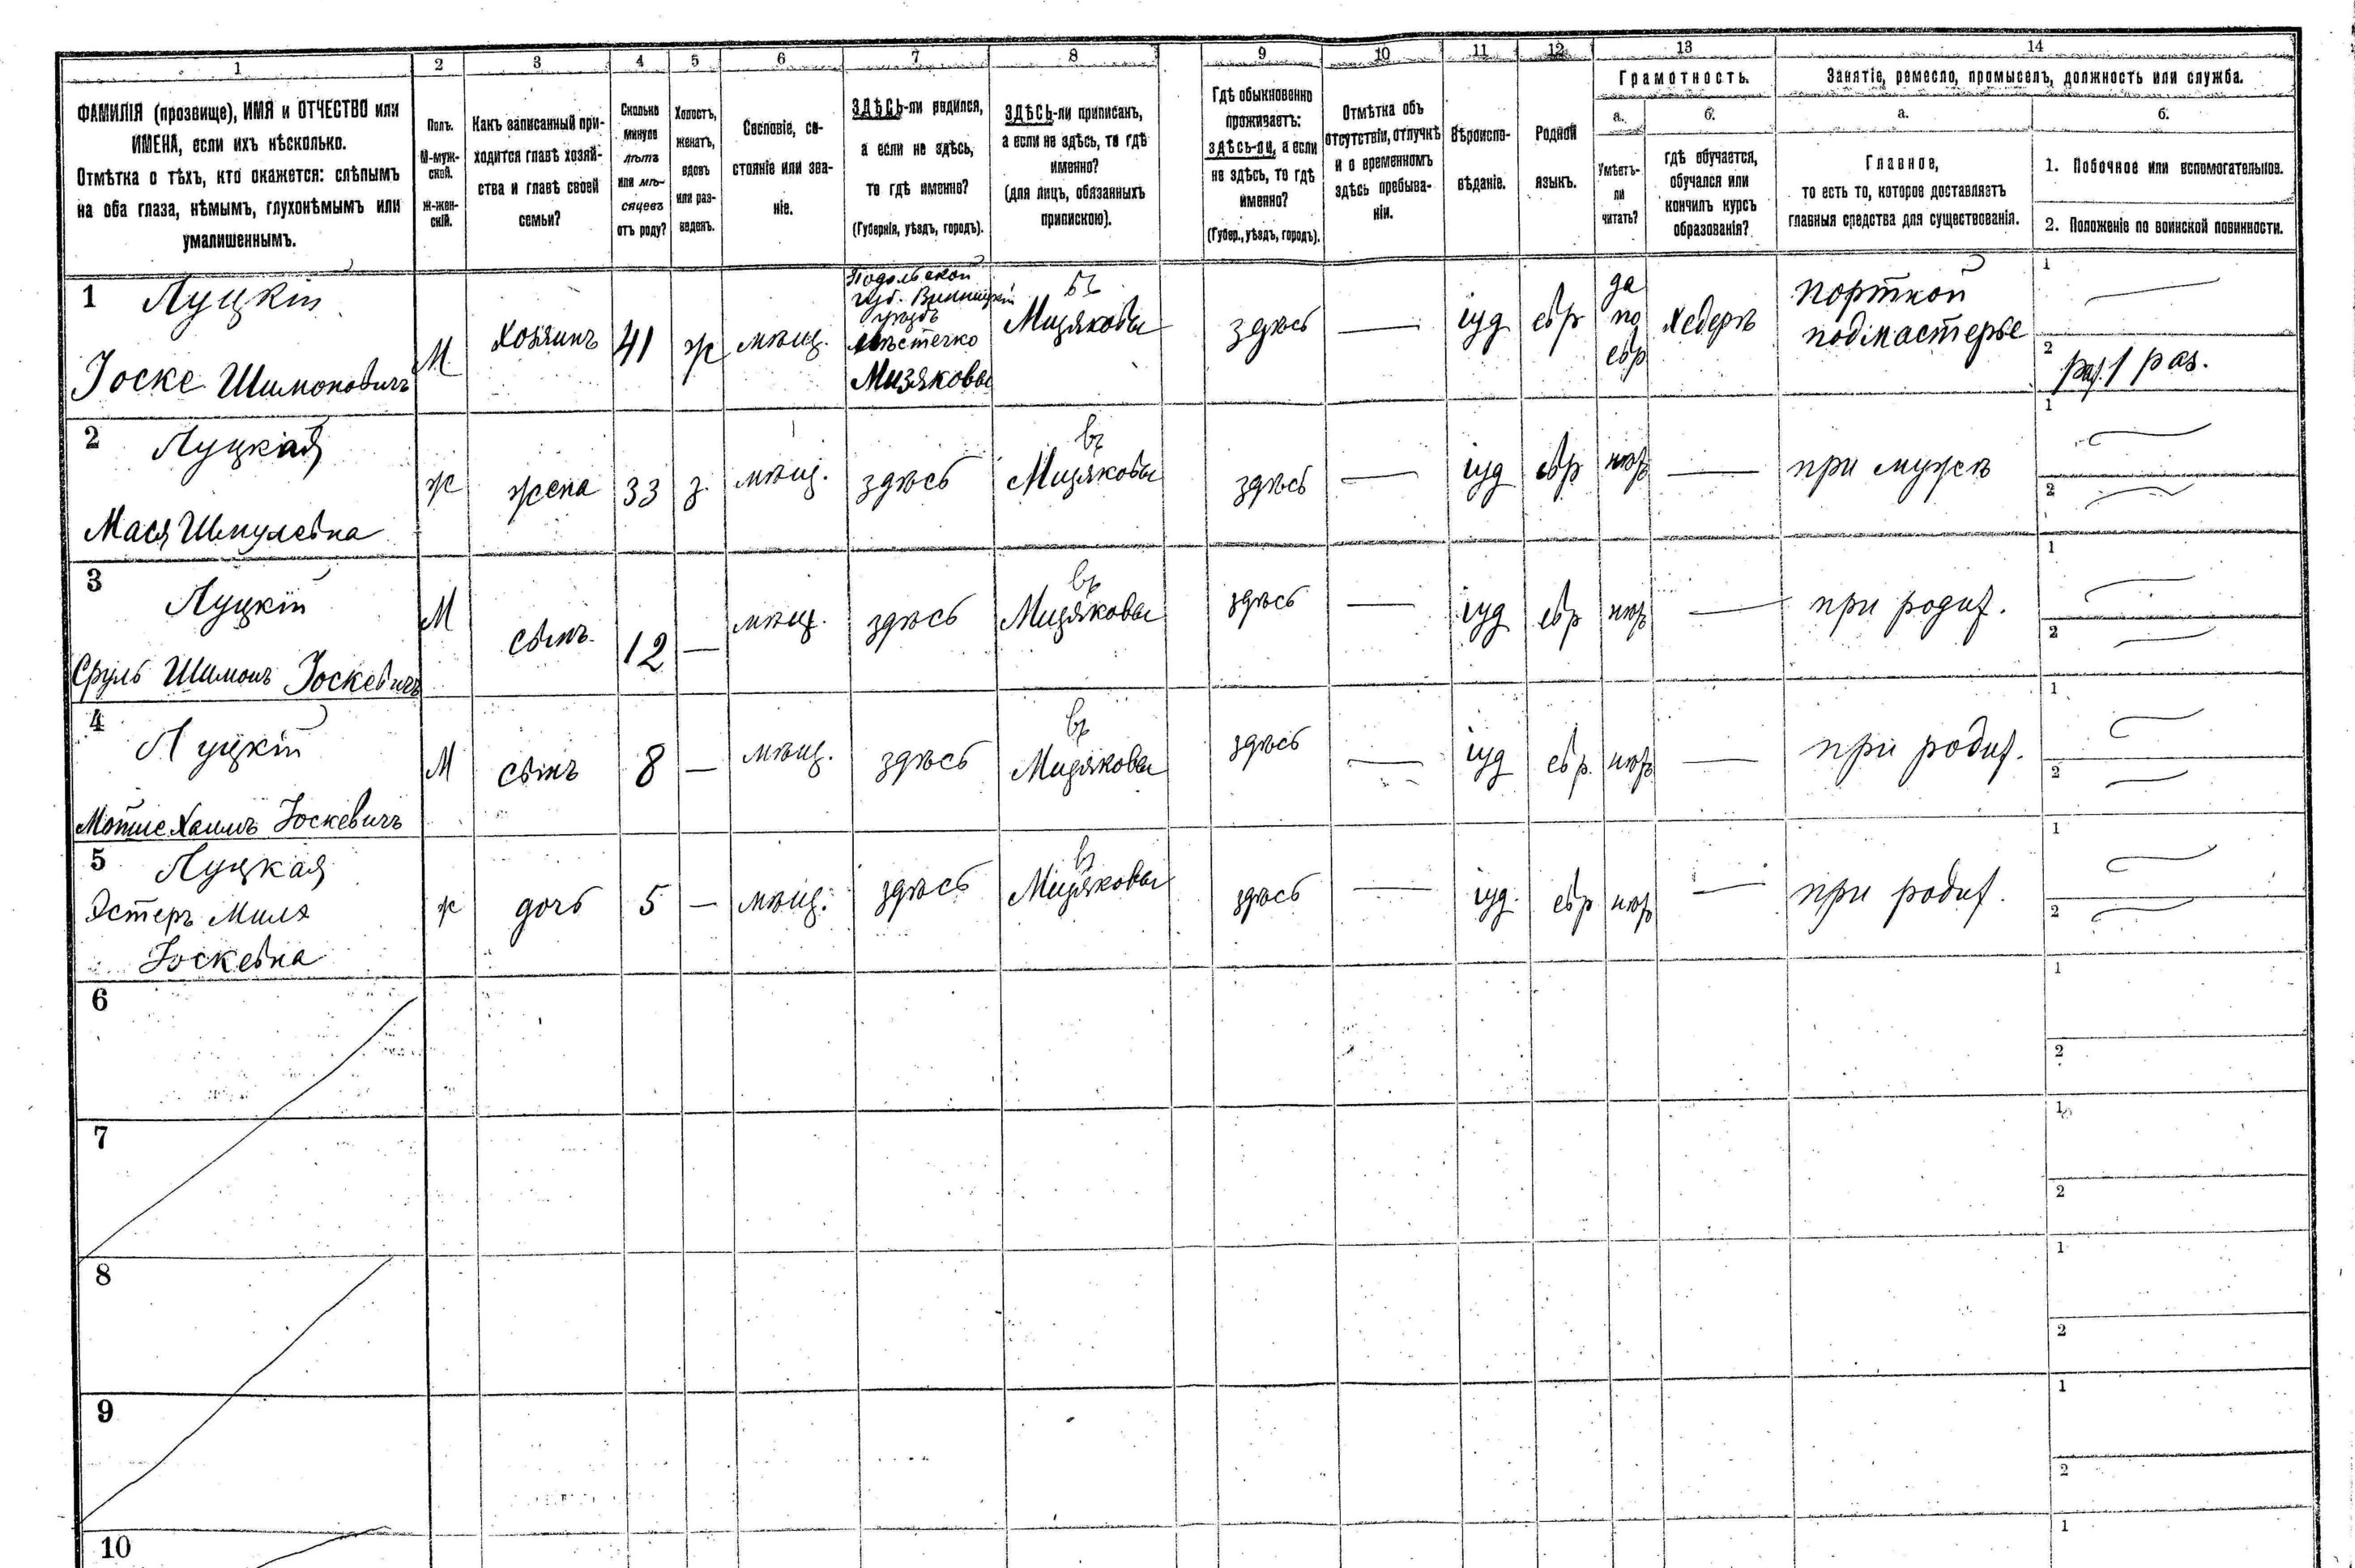 1 2 3 4 5 6 7 8 9 10 11 12 13 14
ФАМИЛІЯ (прозвище), ИМЯ и ОТЧЕСТВО или
ИМЕНА, если ихъ нѣсколько.
Отмѣтка о тѣхъ, кто окажется: слѣпымъ
на оба глаза, нѣмымъ, глухонѣмымъ или
умалишеннымъ.
Полъ.
М-муж-
ской.
Ж-жен-
скій.
Какъ записанный при-
ходится главѣ хозяй-
ства и главѣ своей
семьи?
Сколько
минуло
лѣтъ
или мѣ-
сяцевъ
отъ роду?
Холостъ,
женатъ,
вдовъ
или раз-
веденъ.
Сословіе, со-
стояніе или зва-
ніе.
ЗДѢСЬ-ли родился,
а если не здѣсь,
то гдѣ именно?
(Губернія, уѣздъ, городъ).
ЗДѢСЬ-ли приписанъ,
а если не здѣсь, то гдѣ
именно?
(для лицъ, обязанныхъ
припискою).
Гдѣ обыкновенно
проживаетъ:
здѣсь-ли, а если
не здѣсь, то гдѣ
именно?
(Губер., уѣздъ, городъ).
Отмѣтка объ
отсутствіи, отлучкѣ
и о временномъ
здѣсь пребыва-
ніи.
Вѣроиспо-
вѣданіе.
Родной
языкъ.
Грамотность.
а.
Умѣетъ-
ли
читать?
б.
гдѣ обучается,
обучался или
кончилъ курсъ
образованія?
Занятіе, ремесло, промыселъ, должность или служба.
а.
Главное,
то есть то, которое доставляетъ
главныя средства для существованія.
б.
1. Побочное или вспомогательное.
2. Положеніе по воинской повинности.
1 Луцкій
Іоске Шимоновичъ
М
хозяинъ
41
ж
мѣщ.
Подольской
губ. Винницкій
уѣздъ
мѣстечко
Мизяковы
въ
Мизяковы
здѣсь
—
іуд
евр
да
по
евр
хедеръ
портной
подмастерье
1 —
2 1 раз.
2 Луцкая
Мася Шмулевна
ж
жена
33
з.
мѣщ.
здѣсь
въ
Мизяковы
здѣсь
—
іуд
евр
нѣтъ
—
при мужѣ
1 —
2 —
3 Луцкій
Сруль Шимонъ Іоскевичъ
М
сынъ
12
—
мѣщ.
здѣсь
въ
Мизяковы
здѣсь
—
іуд
евр
нѣтъ
—
при родит.
1 —
2 —
4 Луцкій
Мотие Хаимъ Іоскевичъ
М
сынъ
8
—
мѣщ.
здѣсь
въ
Мизяковы
здѣсь
—
іуд
евр.
нѣтъ
—
при родит.
1 —
2 —
5 Луцкая
Эстеръ Миля
Іоскевна
ж
дочь
5
—
мѣщ.
здѣсь
въ
Мизяковы
здѣсь
—
іуд.
евр
нѣтъ
—
при родит.
1 —
2 —
6
1
2
7
1
2
8
1
2
9
1
2
10
1